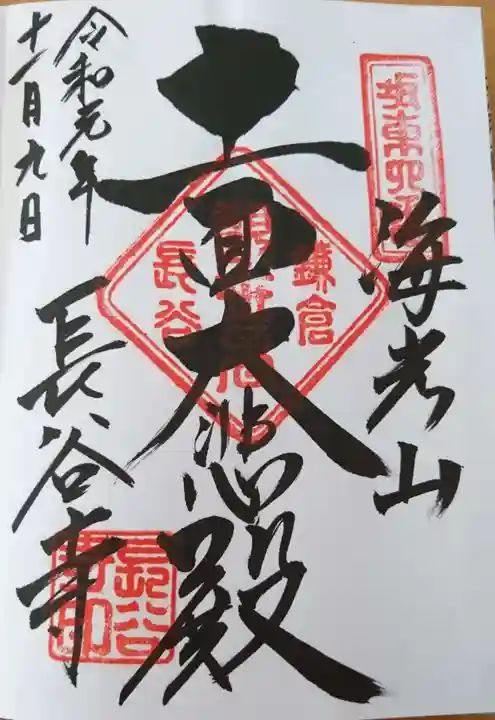 坂東四番
海光山
十一面大悲殿
鎌倉
長谷
長谷寺
長谷寺印
令和元年
十一月九日